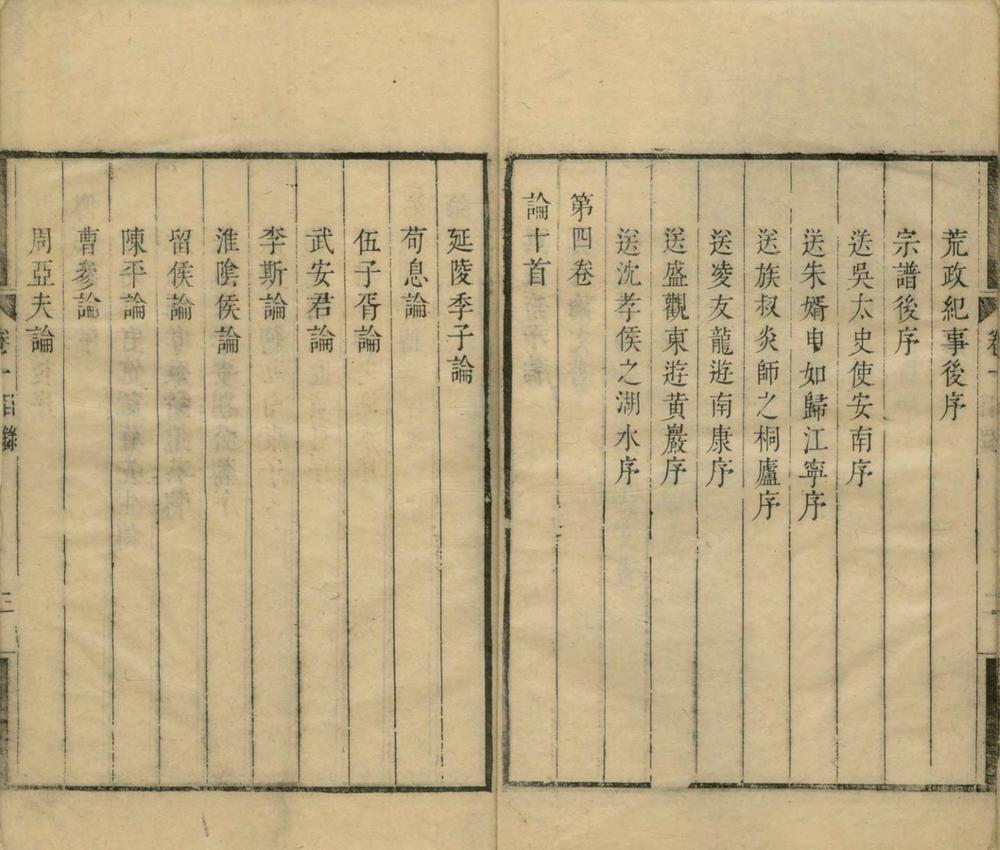 荒政紀事後序
宗譜後序
送吳太史使安南序
送朱婿申如歸江寧序
送族叔炎師之桐廬序
送凌友龍遊南康序
送盛觀東遊黃巖序
送沈孝侯之湖水序
第四卷
論十首
延陵季子論
荀息論
伍子胥論
武安君論
李斯論
淮陰侯論
留侯論
陳平論
曹參論
周亞夫論
三